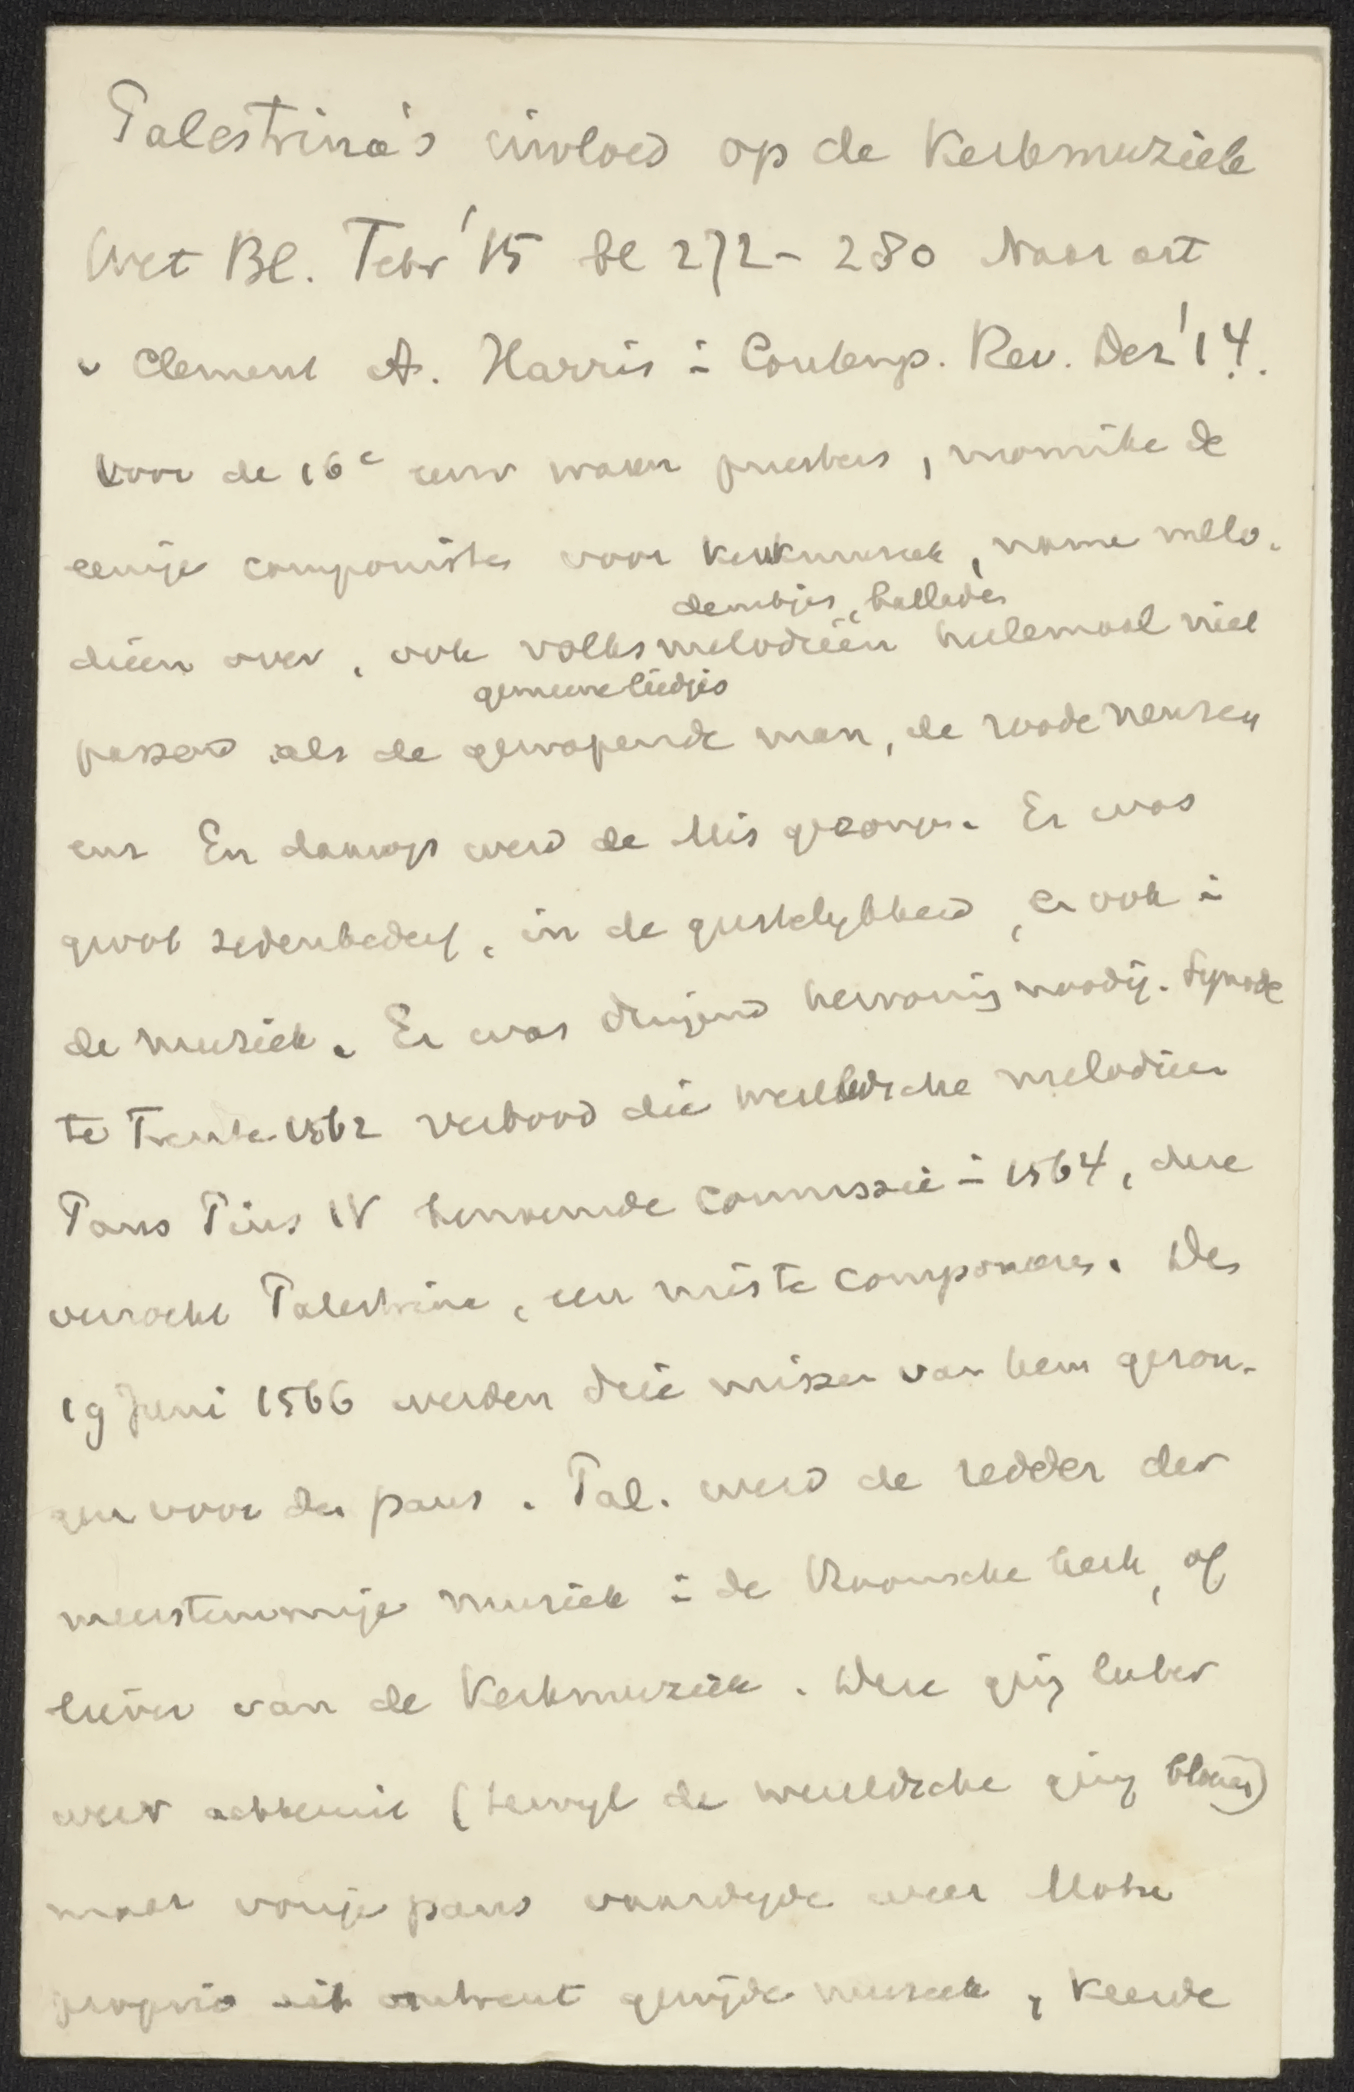 Palestrina's invloed op de Kerkmuziek
Wet Bl. Febr '15 bl 272-280 Naar art
v Clement A. Harris i Contemp. Rev. Dez '14.
Voor de 16e eeuw waren priesters, monniken de
eenige componisten voor kerkmuziek, namen melo-
deuntjes, ballades
dieën over, ook volksmelodieën heelemaal niet
gemeene liedjes
passend als de gewapende man, de roode neuzen
enz En daarop werd de Mis gezongen. Er was
groot zedenbederf, in de geestelijkheid, en ook i
de muziek. Er was dringend hervorming noodig. Synode
te Trente 1562 verbood die wereldsche melodieen
Paus Pius IV benoemde commissie i 1564, deze
verzocht Palestrina, een mis te componeeren. Den
19 Juni 1566 werden drie missen van hem gezon-
gen voor den paus. Pal. werd de redder der
meerstemmige muziek i de Roomsche kerk, of
liever van de Kerkmuziek. Deze ging later
weer achteruit (terwyl de wereldsche ging bloeien)
maar vorige paus vaardigde weer Motu
proprio uit omtrent gewijde muziek, keerde